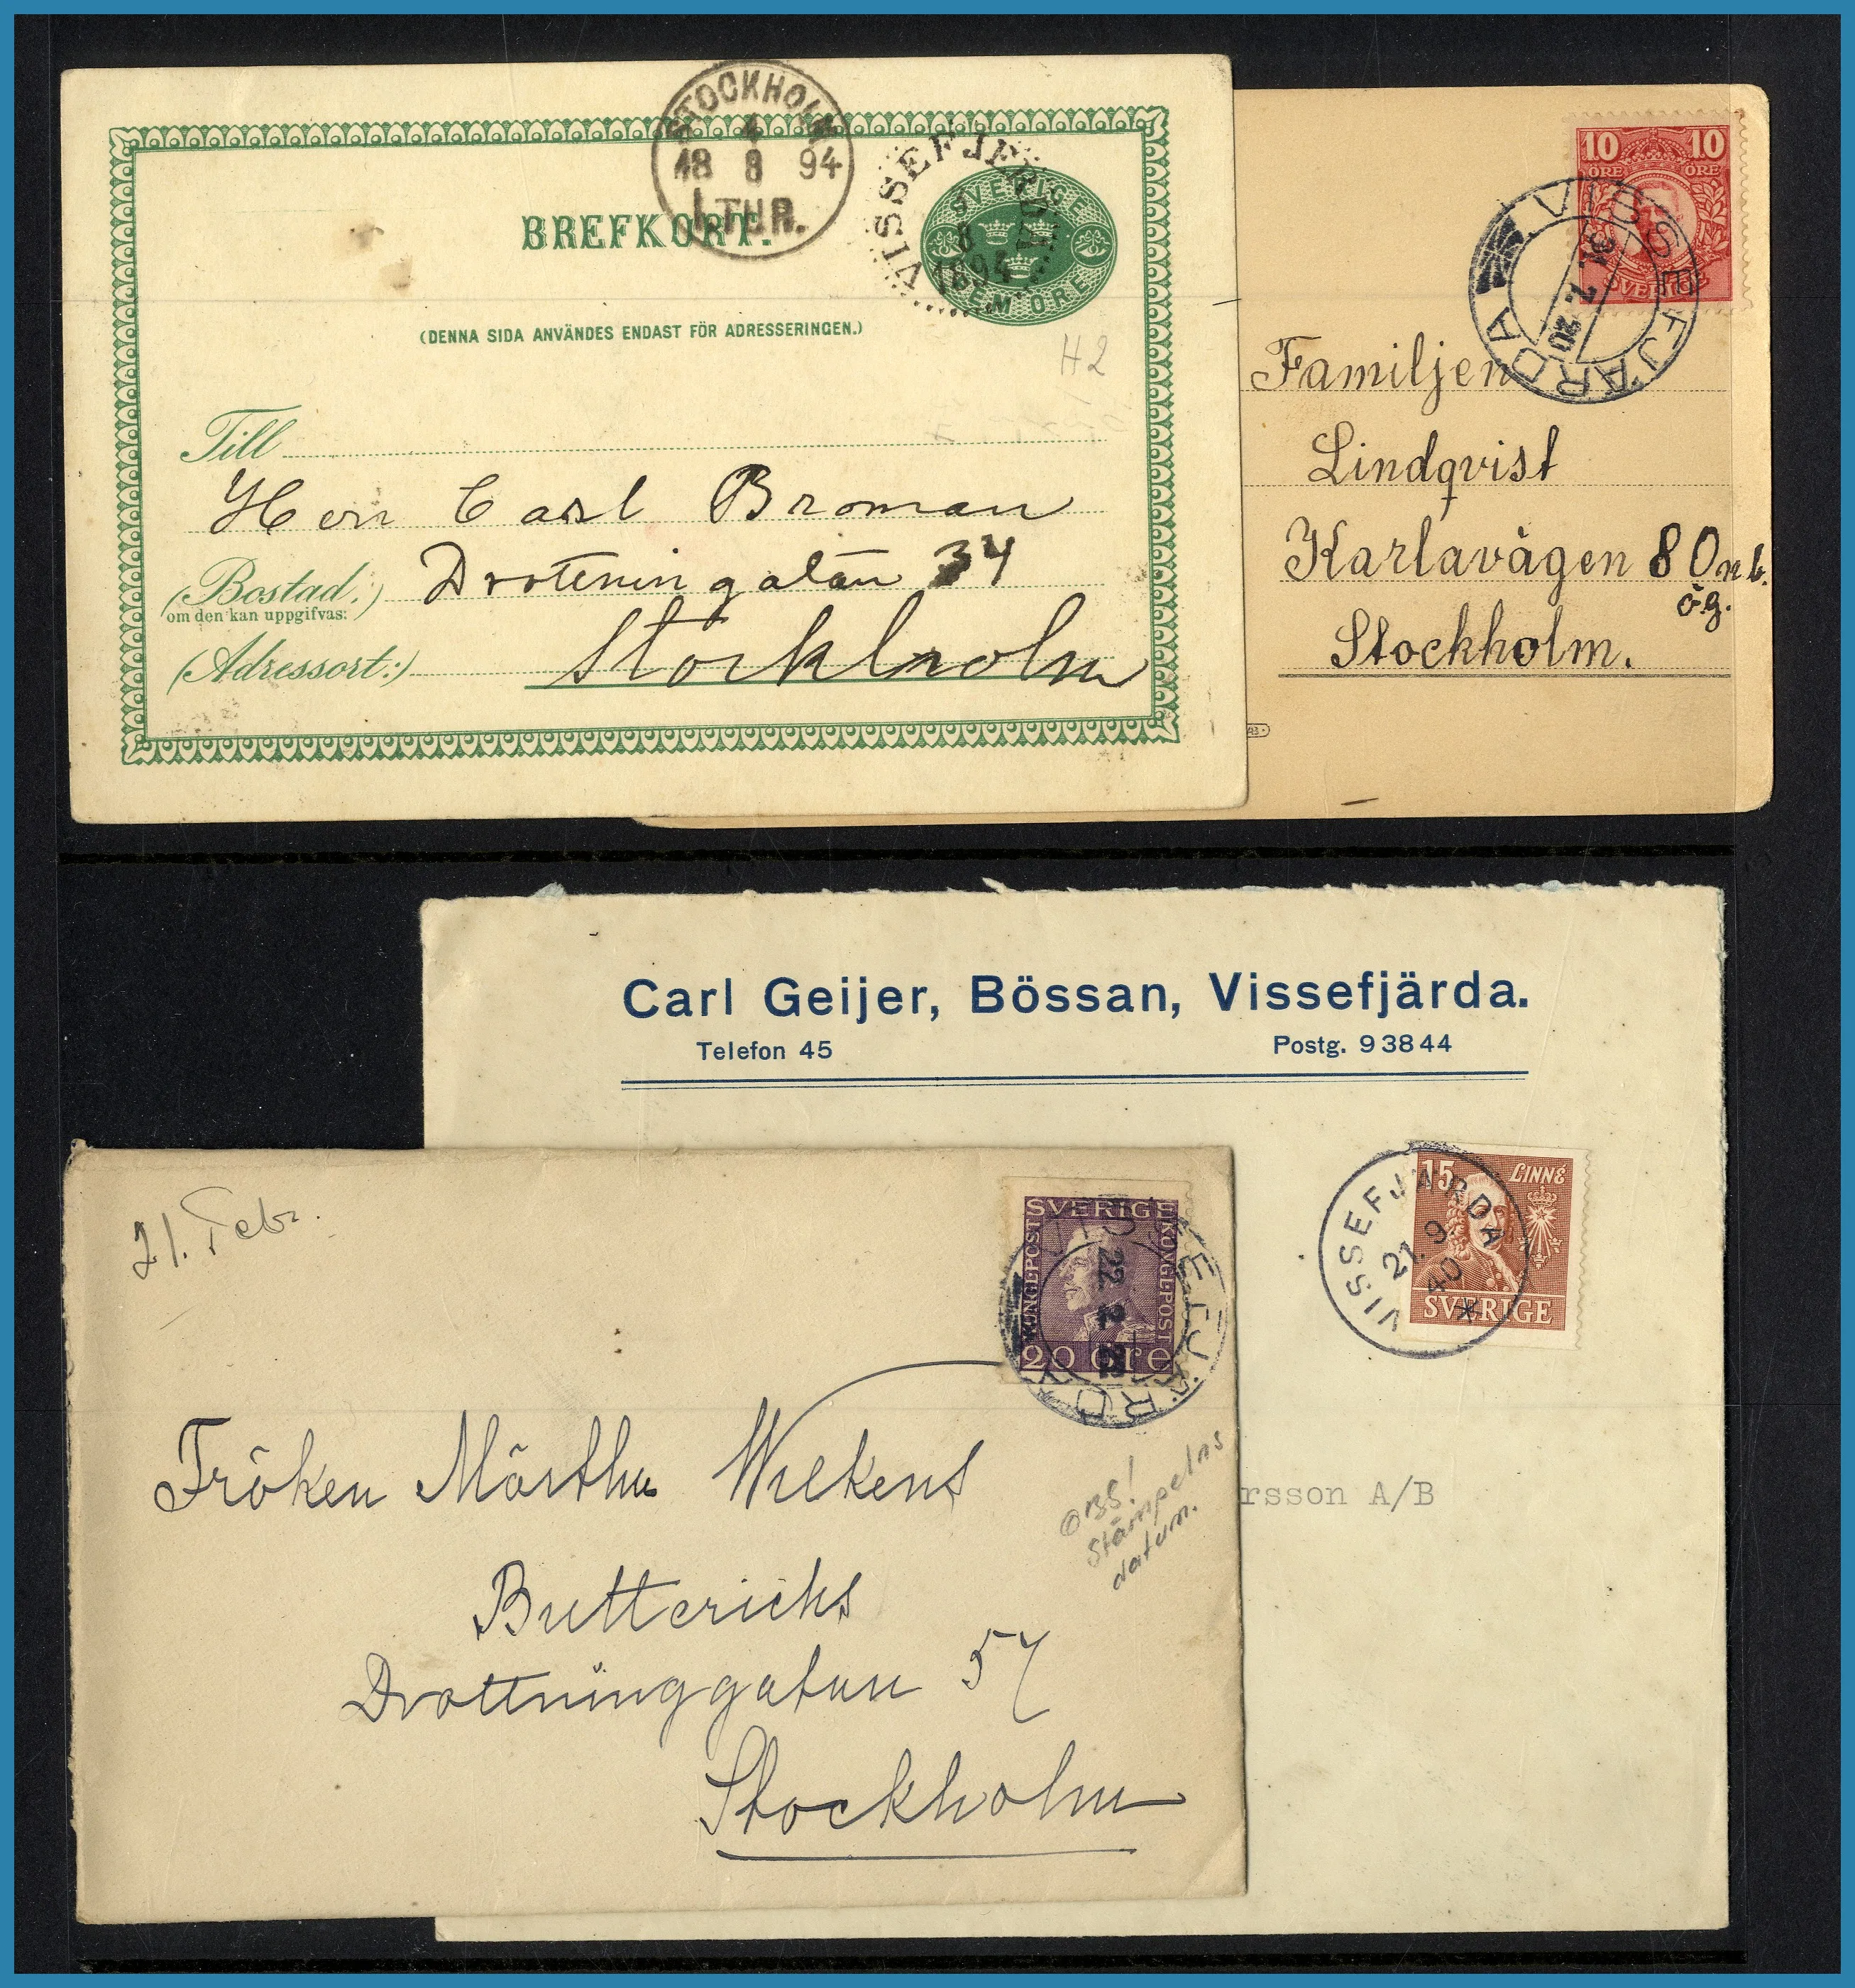 STOCKHOLM
4
18 8 94
1.TUR.
BREFKORT.
VISSEFJERDA
8
1894
SVERIGE
FEM ÖRE
(DENNA SIDA ANVÄNDES ENDAST FÖR ADRESSERINGEN.)
H2
Till
Herr Carl Broman
(Bostad:)
om den kan uppgifvas:
Drotteningatan 34
(Adressort:)
Stockholm
10 10
ÖRE ÖRE
SVERIGE
VISSEFJÄRDA
31.7.20
Familjen
Lindqvist
Karlavägen 80 n.b.
ög.
Stockholm.
Carl Geijer, Bössan, Vissefjärda.
Telefon 45 Postg. 93844
15 LINNÉ
SVERIGE
VISSEFJÄRDA
21.9
40
rsson A/B
21. Febr.
SVERIGE
KUNGLPOST KUNGLPOST
20 öre
VISSEFJÄRDA
22 2 22
Fröken Märtha Wilkens
OBS!
Stämpelns
datum.
Buttericks
Drottninggatan 57
Stockholm